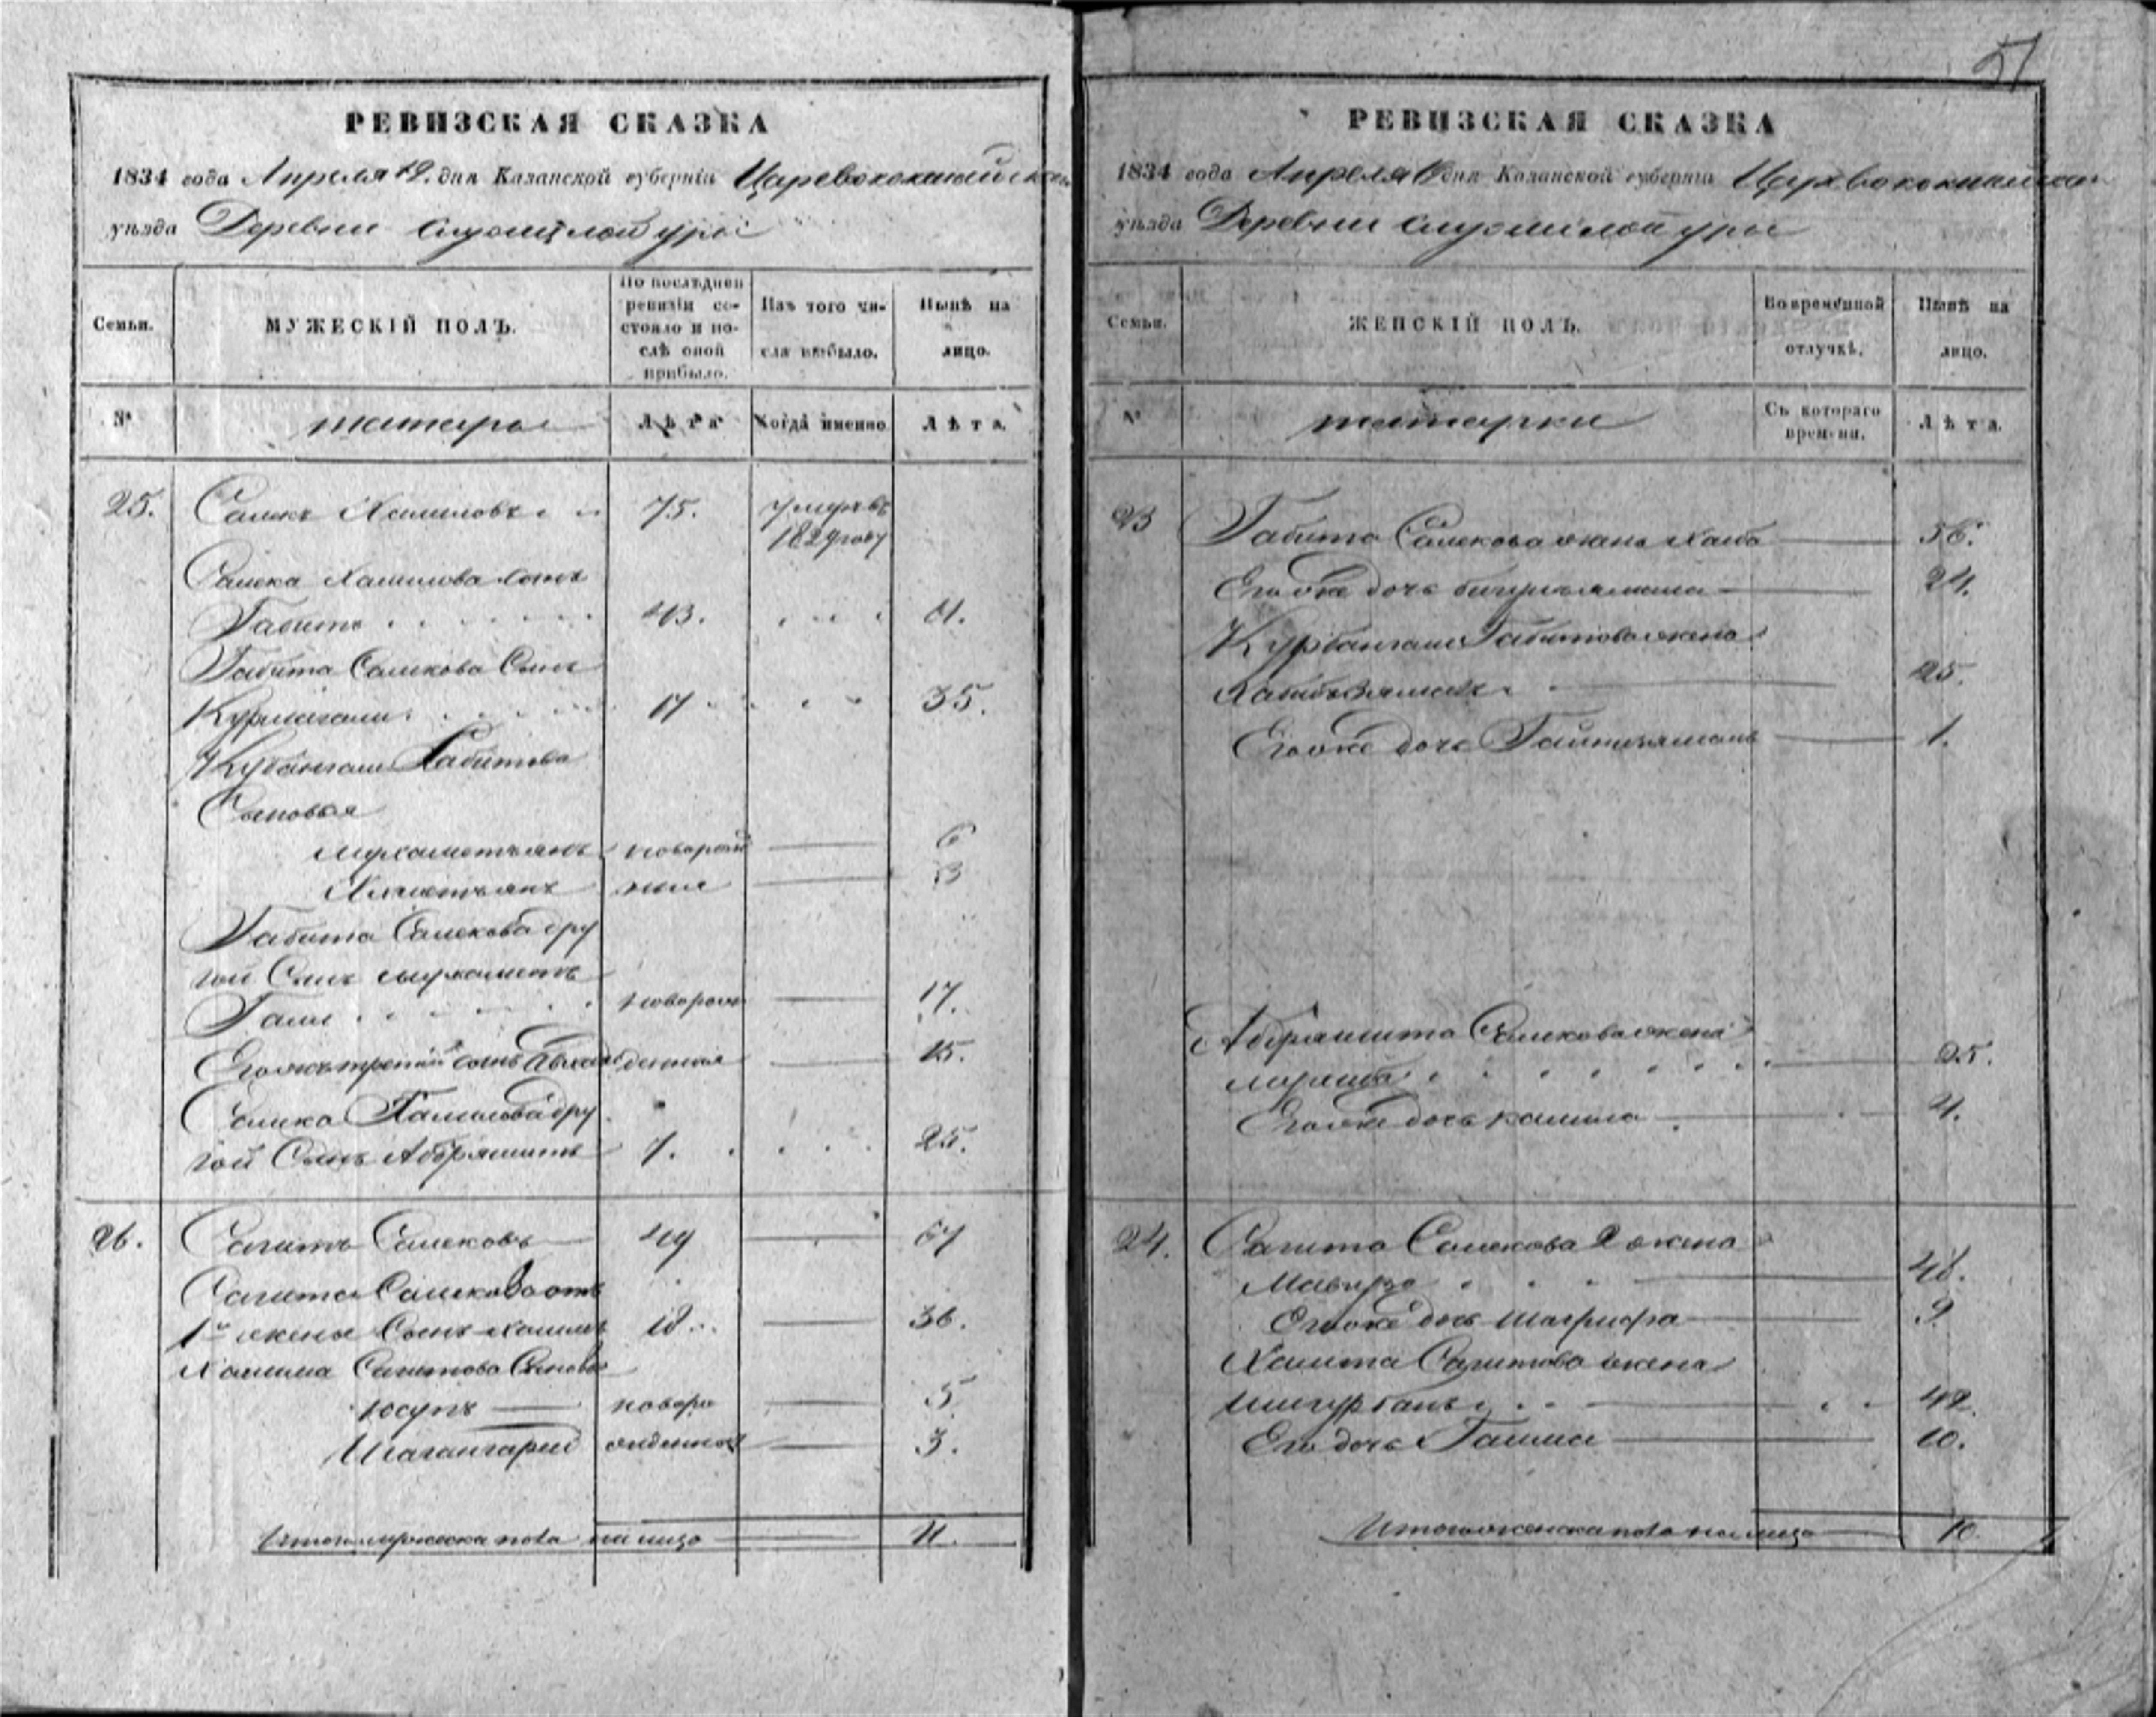 51
РЕВИЗСКАЯ СКАЗКА
1834 года Апреля 19. дня Казанской губерніи Царевококшайской
уѣзда Деревни Служилой уры
Семьи.
МУЖЕСКІЙ ПОЛЪ.
По послѣдней ревизіи состояло и послѣ оной прибыло.
Изъ того числа выбыло.
Нынѣ на лицо.
№
татары
Лѣта
Когда именно
Лѣта.
25. Салихъ Халиловъ 75. умеръ въ
1829 году
Салиха Халилова сынъ
Габитъ 43.
Габита Салихова Сынъ
17 35.
Габитова
Сыновья
Мухаметьянъ новорож 6
денные 3
Габита Салихова дру
гой Сынъ мухаметъ
Гали новорож 17.
Его жъ третій сынъ денной 15.
Салиха Халилова дру
гой Сынъ Абдряшитъ 7. 25.
26. Сагитъ Салиховъ 49 67
Сагита Салихова отъ
1й жены Сынъ Халитъ 18. 36.
Сагитова Сыновья
Юсупъ новоро 5
Шагангарей жденные 3.
Итого мужеска пола на лицо 11.
РЕВИЗСКАЯ СКАЗКА
1834 года Апреля дня Казанской губерніи Царевококшайской
уѣзда Деревни Служилой уры
Семьи.
ЖЕНСКІЙ ПОЛЪ.
Во временной отлучкѣ.
Нынѣ на лицо.
№
татарки
Съ котораго времени.
Лѣта.
23 Габита Салихова жена 56.
Его же дочь 24.
Курбангали Габитова жена
25.
Его же дочь 1.
Абдряшита Салихова жена
25.
Его же дочь 4.
24. Сагита Салихова 2 жена
48.
Его же дочь Шарифа 9
Халита Сагитова жена
42.
Его дочь 10.
Итого женска пола на лицо 10